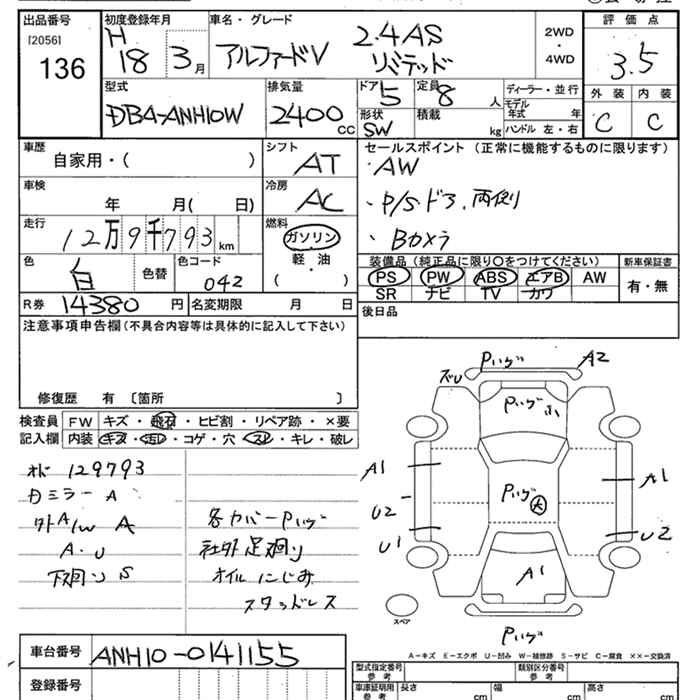 出品番号 初度登録年月 車名・グレード 評価点
[2056]
136
H 18 3月
アルファードV 2.4AS リミテッド
2WD・4WD
3.5
型式 排気量 ドア 5 定員 8人 ディーラー・並行 外装 内装
DBA-ANH10W 2400cc
形状 SW 積載 kg
モデル年式 年
ハンドル 左・右
C C
車歴 シフト セールスポイント(正常に機能するものに限ります)
自家用・( ) AT
・AW
車検 冷房
年 月( 日) AC
・P/Sドア、両側
走行 燃料
12万9千793km ガソリン
・Bカメラ
軽・油
( )
色 色コード
白 色替 042
装備品(純正品に限り○をつけてください) 新車保証書
PS PW ABS エアB AW 有・無
SR ナビ TV カワ
R券 14380円 名変期限 月 日
後日品
注意事項申告欄(不具合内容等は具体的に記入して下さい)
修復歴 有〔箇所 〕
検査員 FW キズ・飛石・ヒビ割・リペア跡・×要
記入欄 内装 キズ・汚レ・コゲ・穴・スレ・キレ・破レ
オド 129793
カミラー A
外A/W A
A・U
下廻り S
各カバーPハゲ
社外足廻り
オイルにじみ
スタッドレス
Pハゲ A2
ズU
Pハゲ小
A1 A1
Pハゲ大
U2
U1 U2
A1
スペア
Pハゲ
A-キズ E-エクボ U-凹み W-補修跡 S-サビ C-腐食 ××-交換済
車台番号 ANH10-0141155
型式指定番号 参考 類別区分番号 参考
登録番号
車庫証明用参考 長さ cm 幅 cm 高さ cm